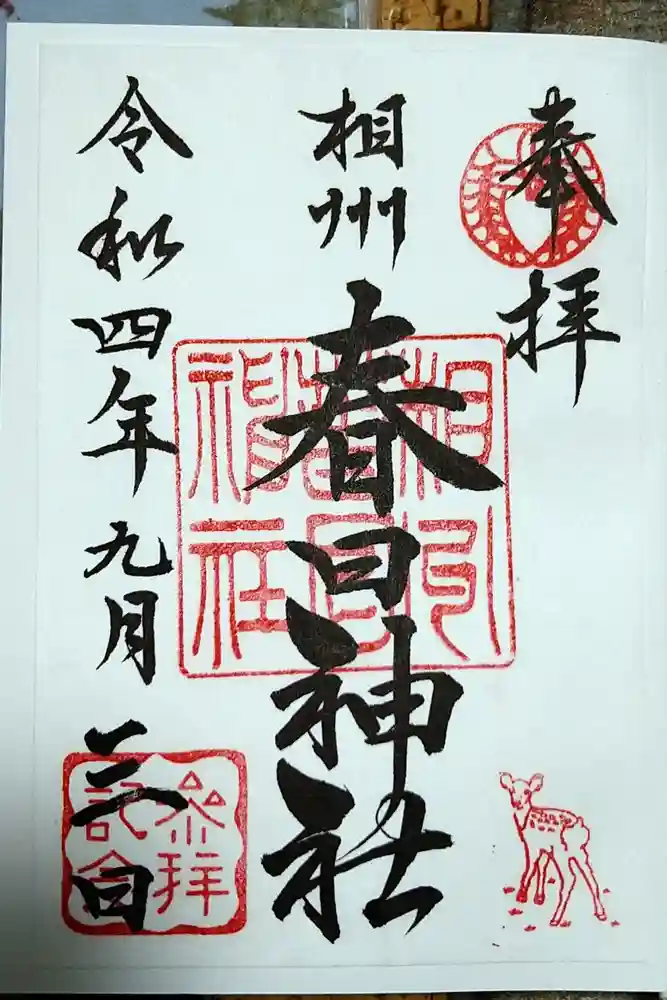 奉拝
相州
春日神社
令和四年九月三日
相州
春日
神社
参拝
記念